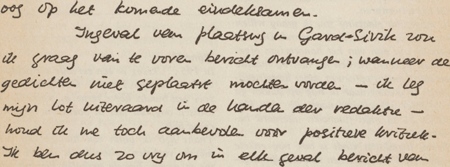 oog op het komende eindeksamen.
Ingeval van plaatsing in Gard-Sivik zou
ik graag van te voren bericht ontvangen; wanneer de
gedichten niet geplaatst mochten worden — ik leg
mijn lot uiteraard in de handen der redaktie —
houd ik me toch aanbevolen voor positieve kritiek.
Ik ben dus zo vrij om in elk geval bericht van